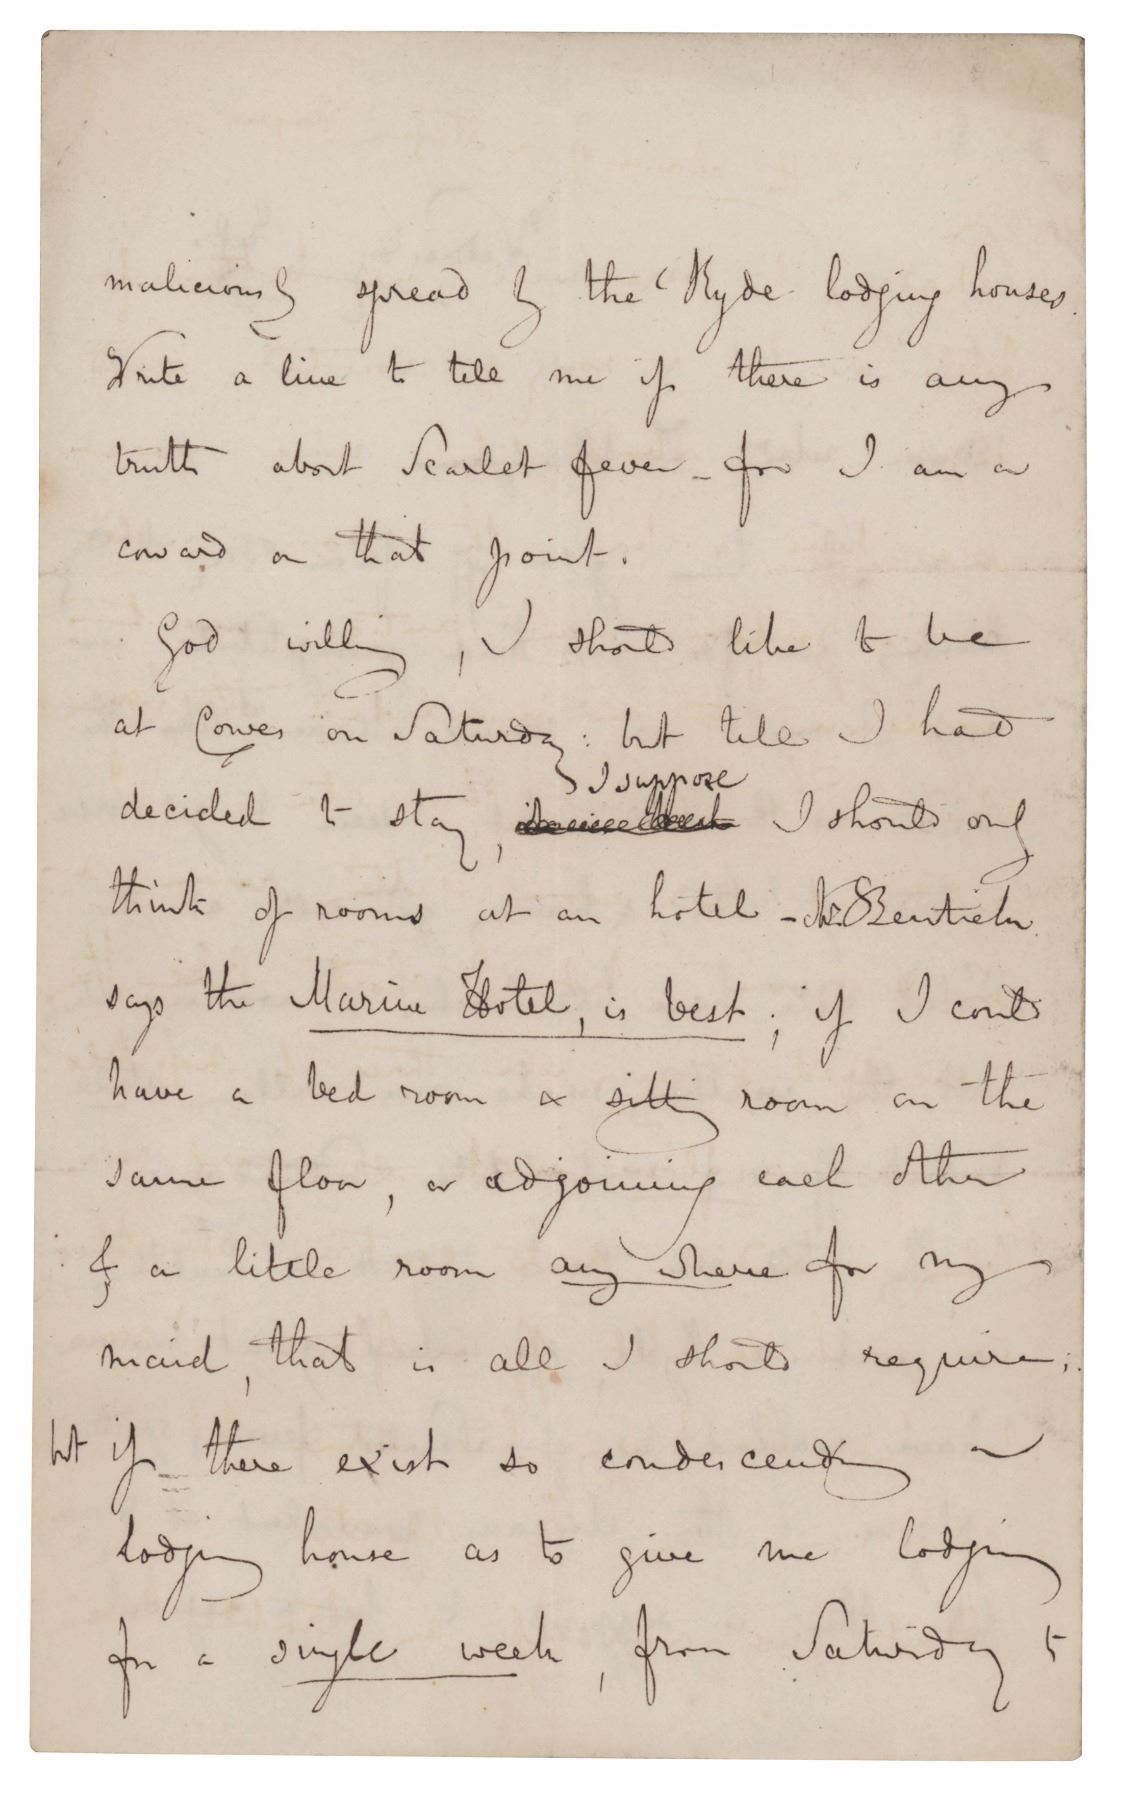 maliciously spread by the Ryde lodging houses.
Write a line to tell me if there is any
truth about Scarlet fever - for I am a
coward on that point.
God willing, I should like to be
at Cowes on Saturday: but till I had
I suppose
decided to stay, I should only
think of rooms at an hotel - Mr.
says the Marine Hotel, is best; if I could
have a bed room & sitting room on the
same floor, or adjoining each other
& a little room any where for my
maid, that is all I should require;
but if there exist so condescending a
lodging house as to give me lodging
for a single week, from Saturday to